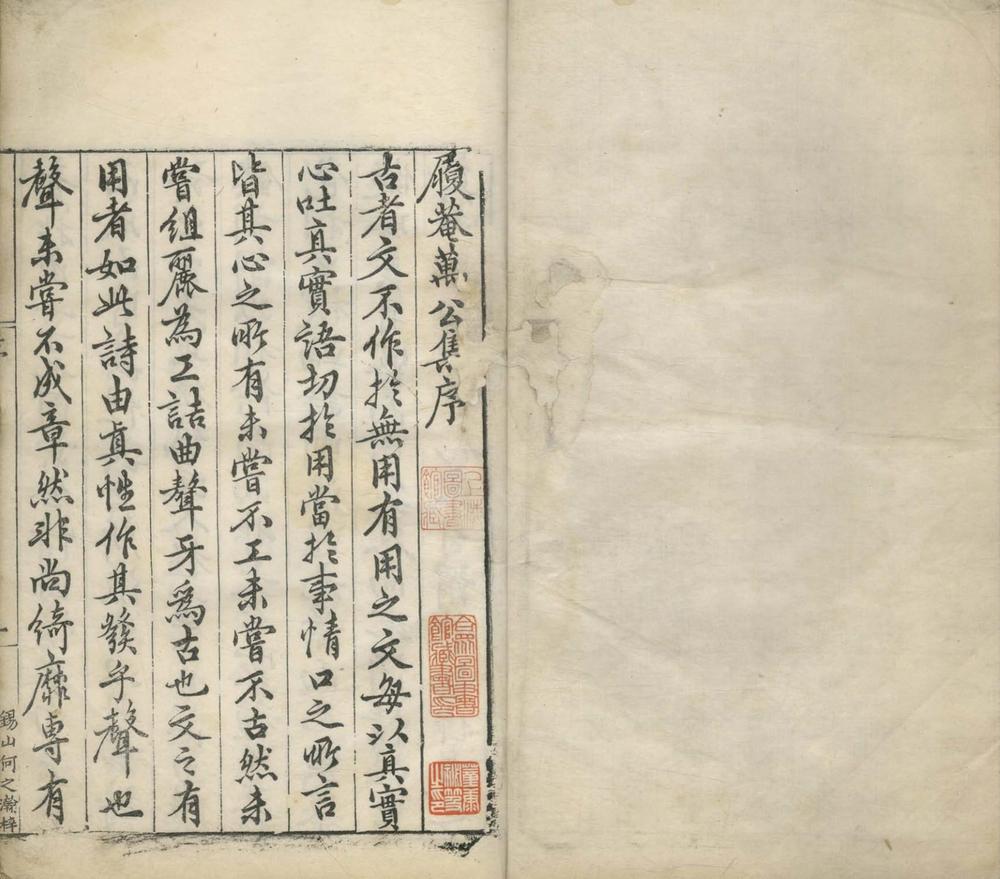 履菴萬公集序
古者文不作扵無用有用之文每以真實
心吐真實語切扵用當扵事情口之所言
皆其心之所有未嘗不工未嘗不古然未
嘗組麗為工詰曲聱牙爲古也文之有
用者如此詩由真性作其發乎聲也
聲未嘗不成章然非尚綺靡専有
錫山何之瀚梓